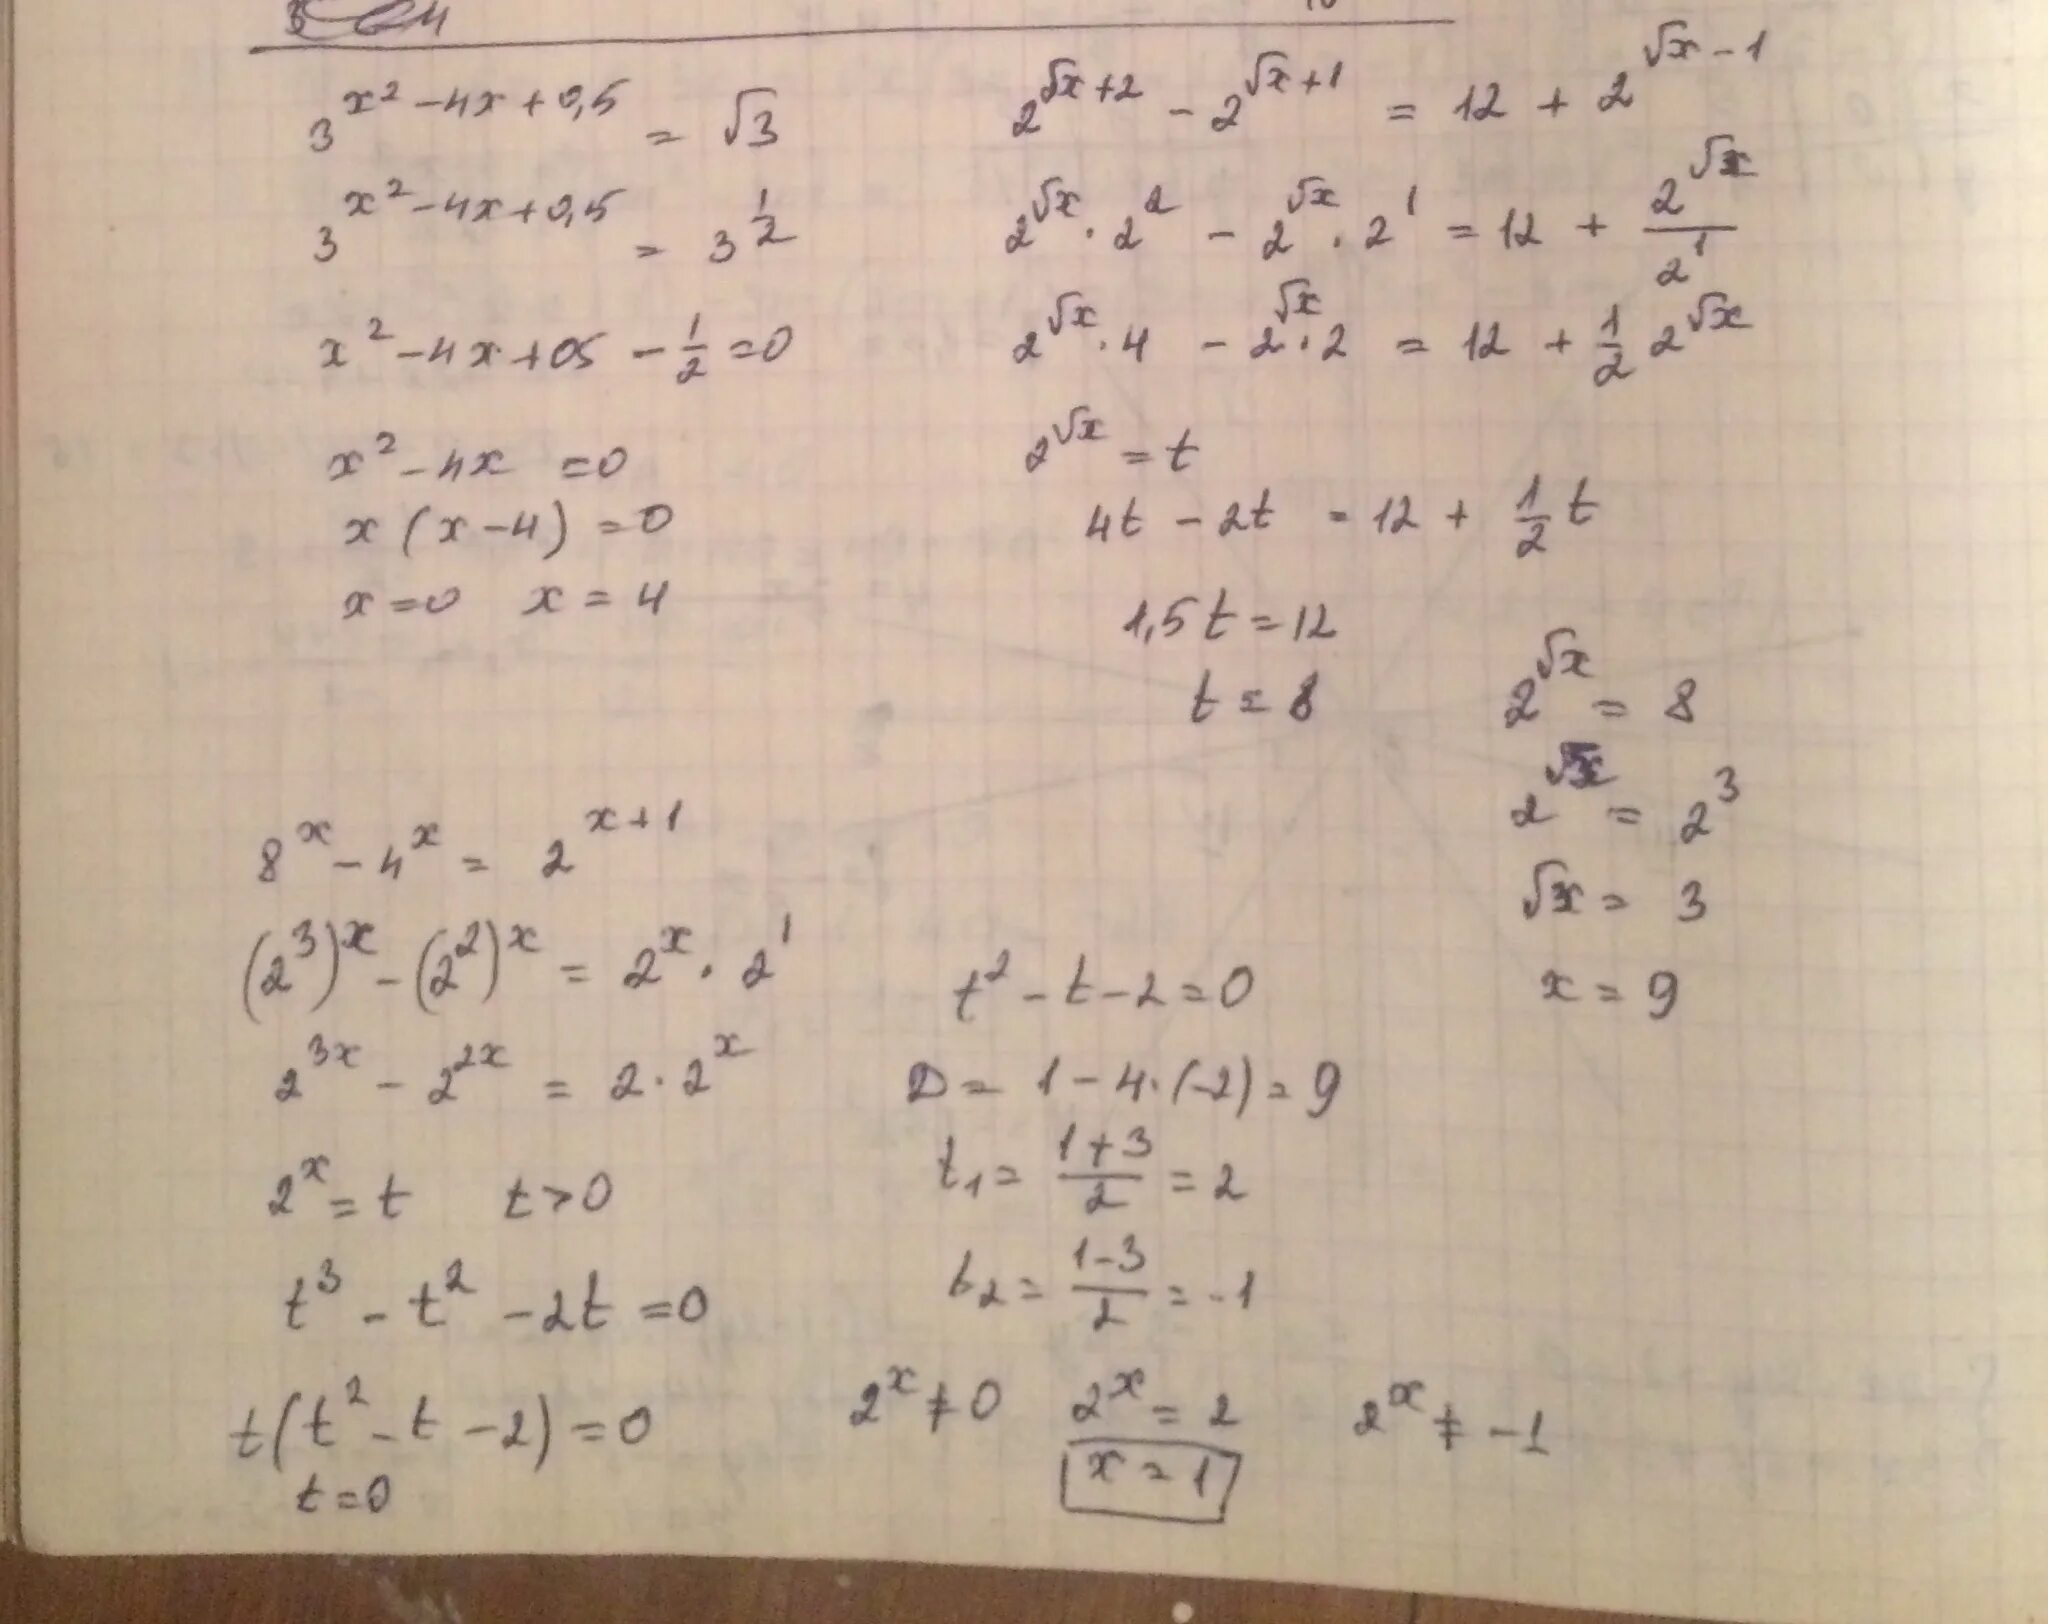 3^(x²-4x+0,5) = √3
3^(x²-4x+0,5) = 3^(1/2)
x²-4x+05 - 1/2 = 0
x²-4x = 0
x(x-4) = 0
x=0 x=4
2^(√x+2) - 2^(√x+1) = 12 + 2^(√x-1)
2^√x · 2² - 2^√x · 2¹ = 12 + 2^√x/2¹
2^√x · 4 - 2^√x · 2 = 12 + 1/2 2^√x
2^√x = t
4t - 2t = 12 + 1/2 t
1,5t = 12
t = 8
2^√x = 8
2^√x = 2³
√x = 3
x = 9
8^x - 4^x = 2^(x+1)
(2³)^x - (2²)^x = 2^x · 2¹
2^(3x) - 2^(2x) = 2 · 2^x
2^x = t t>0
t³ - t² - 2t = 0
t(t² - t - 2) = 0
t=0
t² - t - 2 = 0
D = 1 - 4·(-2) = 9
t₁ = (1+3)/2 = 2
t₂ = (1-3)/2 = -1
2^x ≠ 0 2^x = 2 2^x ≠ -1
x = 1